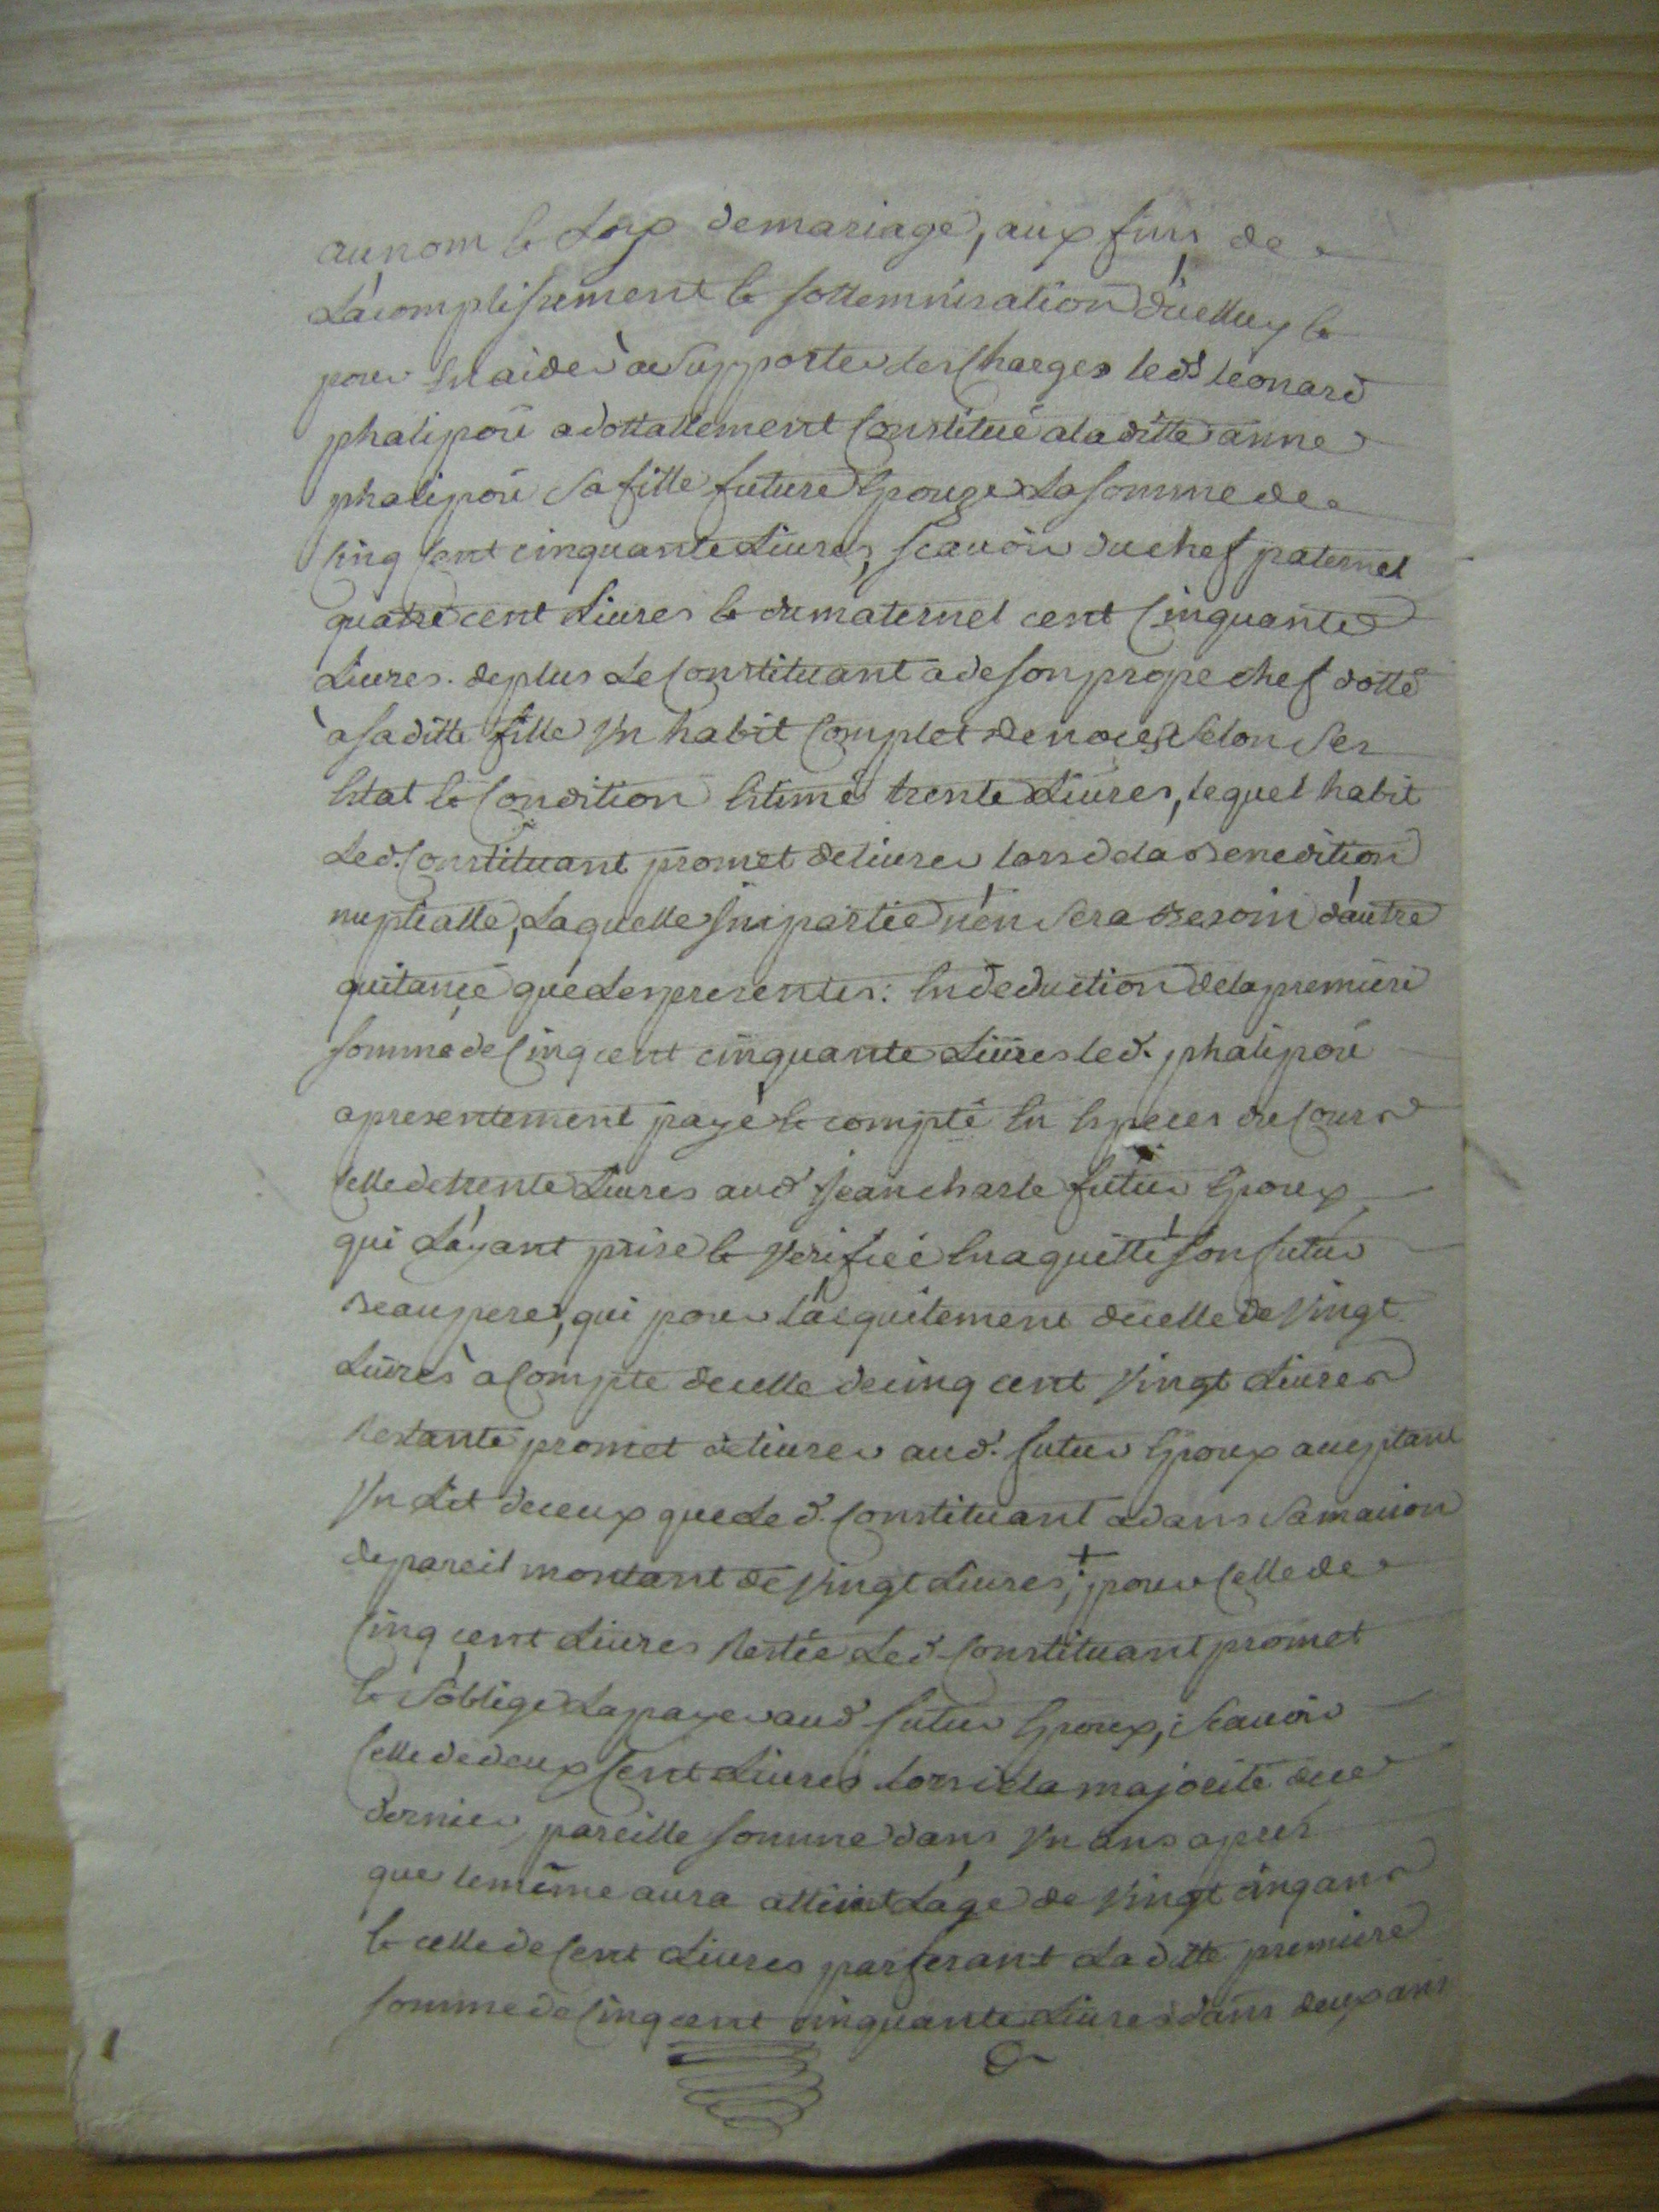 au nom & dôp de mariage, aux fins de
l'accomplissement & sollemnisation d'icelluy &
pour luy aider à supporter les charges led. Leonard
phalipou a dottallement constitué a la ditte anne
phalipou sa fille future epouze la somme de
cinq cent cinquante livres, scavoir du chef paternel
quatre cent livres & du maternel cent cinquante
livres. de plus le constituant a de son propre chef dotté
a la ditte fille un habit complet de noces selon son
etat & condition estimé trente livres, lequel habit
led. constituant promet delivrer lors de la benediction
nuptialle, laquelle susd. partie n'en sera besoin d'autre
quitance que d'en presenter: en deduction de la premiere
somme de cinq cent cinquante livres led. phalipou
a presentement payé & compté en especes de cours
celle de trente livres aud. Jean futur epoux
qui l'ayant prise & verifiée en a quitté son futur
beau pere, qui pour l'acquitement d'icelle de vingt
livres a compte d'icelle de cinq cent vingt livres
restante promet delivrer aud. futur epoux acceptant
un lit d'iceux que led. constituant a dans sa maison
de pareil montant de vingt livres, + pour celle de
cinq cent livres restée led. constituant promet
& s'oblige la payer aud. futur epoux, scavoir
celle de deux cent livres lors de la majorité de ce
dernier, pareille somme dans un ans apres
que lemême aura atteint l'age de vingt cinq ans
& celle de cent livres parferant la ditte premiere
somme de cinq cent cinquante livres dans deux ans